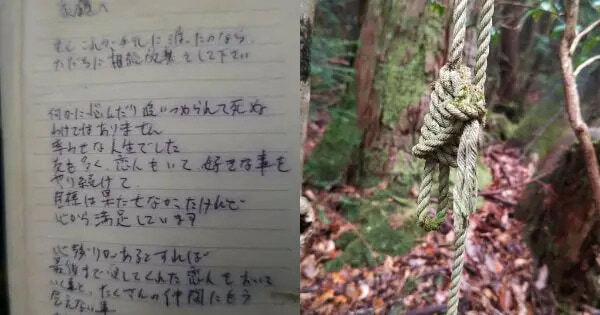 家族へ
もし これが 手元に渡ったのなら、
ただちに 相続放棄 をして下さい
何かに悩んだり 追いつめられて死ぬ
わけではありません
幸せな人生でした
友も多く、恋人もいて、好きな事を
やり続けて
目標は果たせなかったけれど
心から満足しています
心残りがあるとすれば
最後まで愛してくれた恋人をおいて
いく事と、たくさんの仲間にもう
会えない事